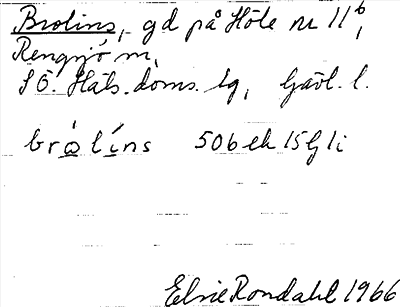 Brolins, gd på Höle nr 11b,
Rengsjö sn,
SÖ. Häls. doms. lg, Gävl. l.
brålíns 50b ek 15 G li
Elsie Rondahl 1966